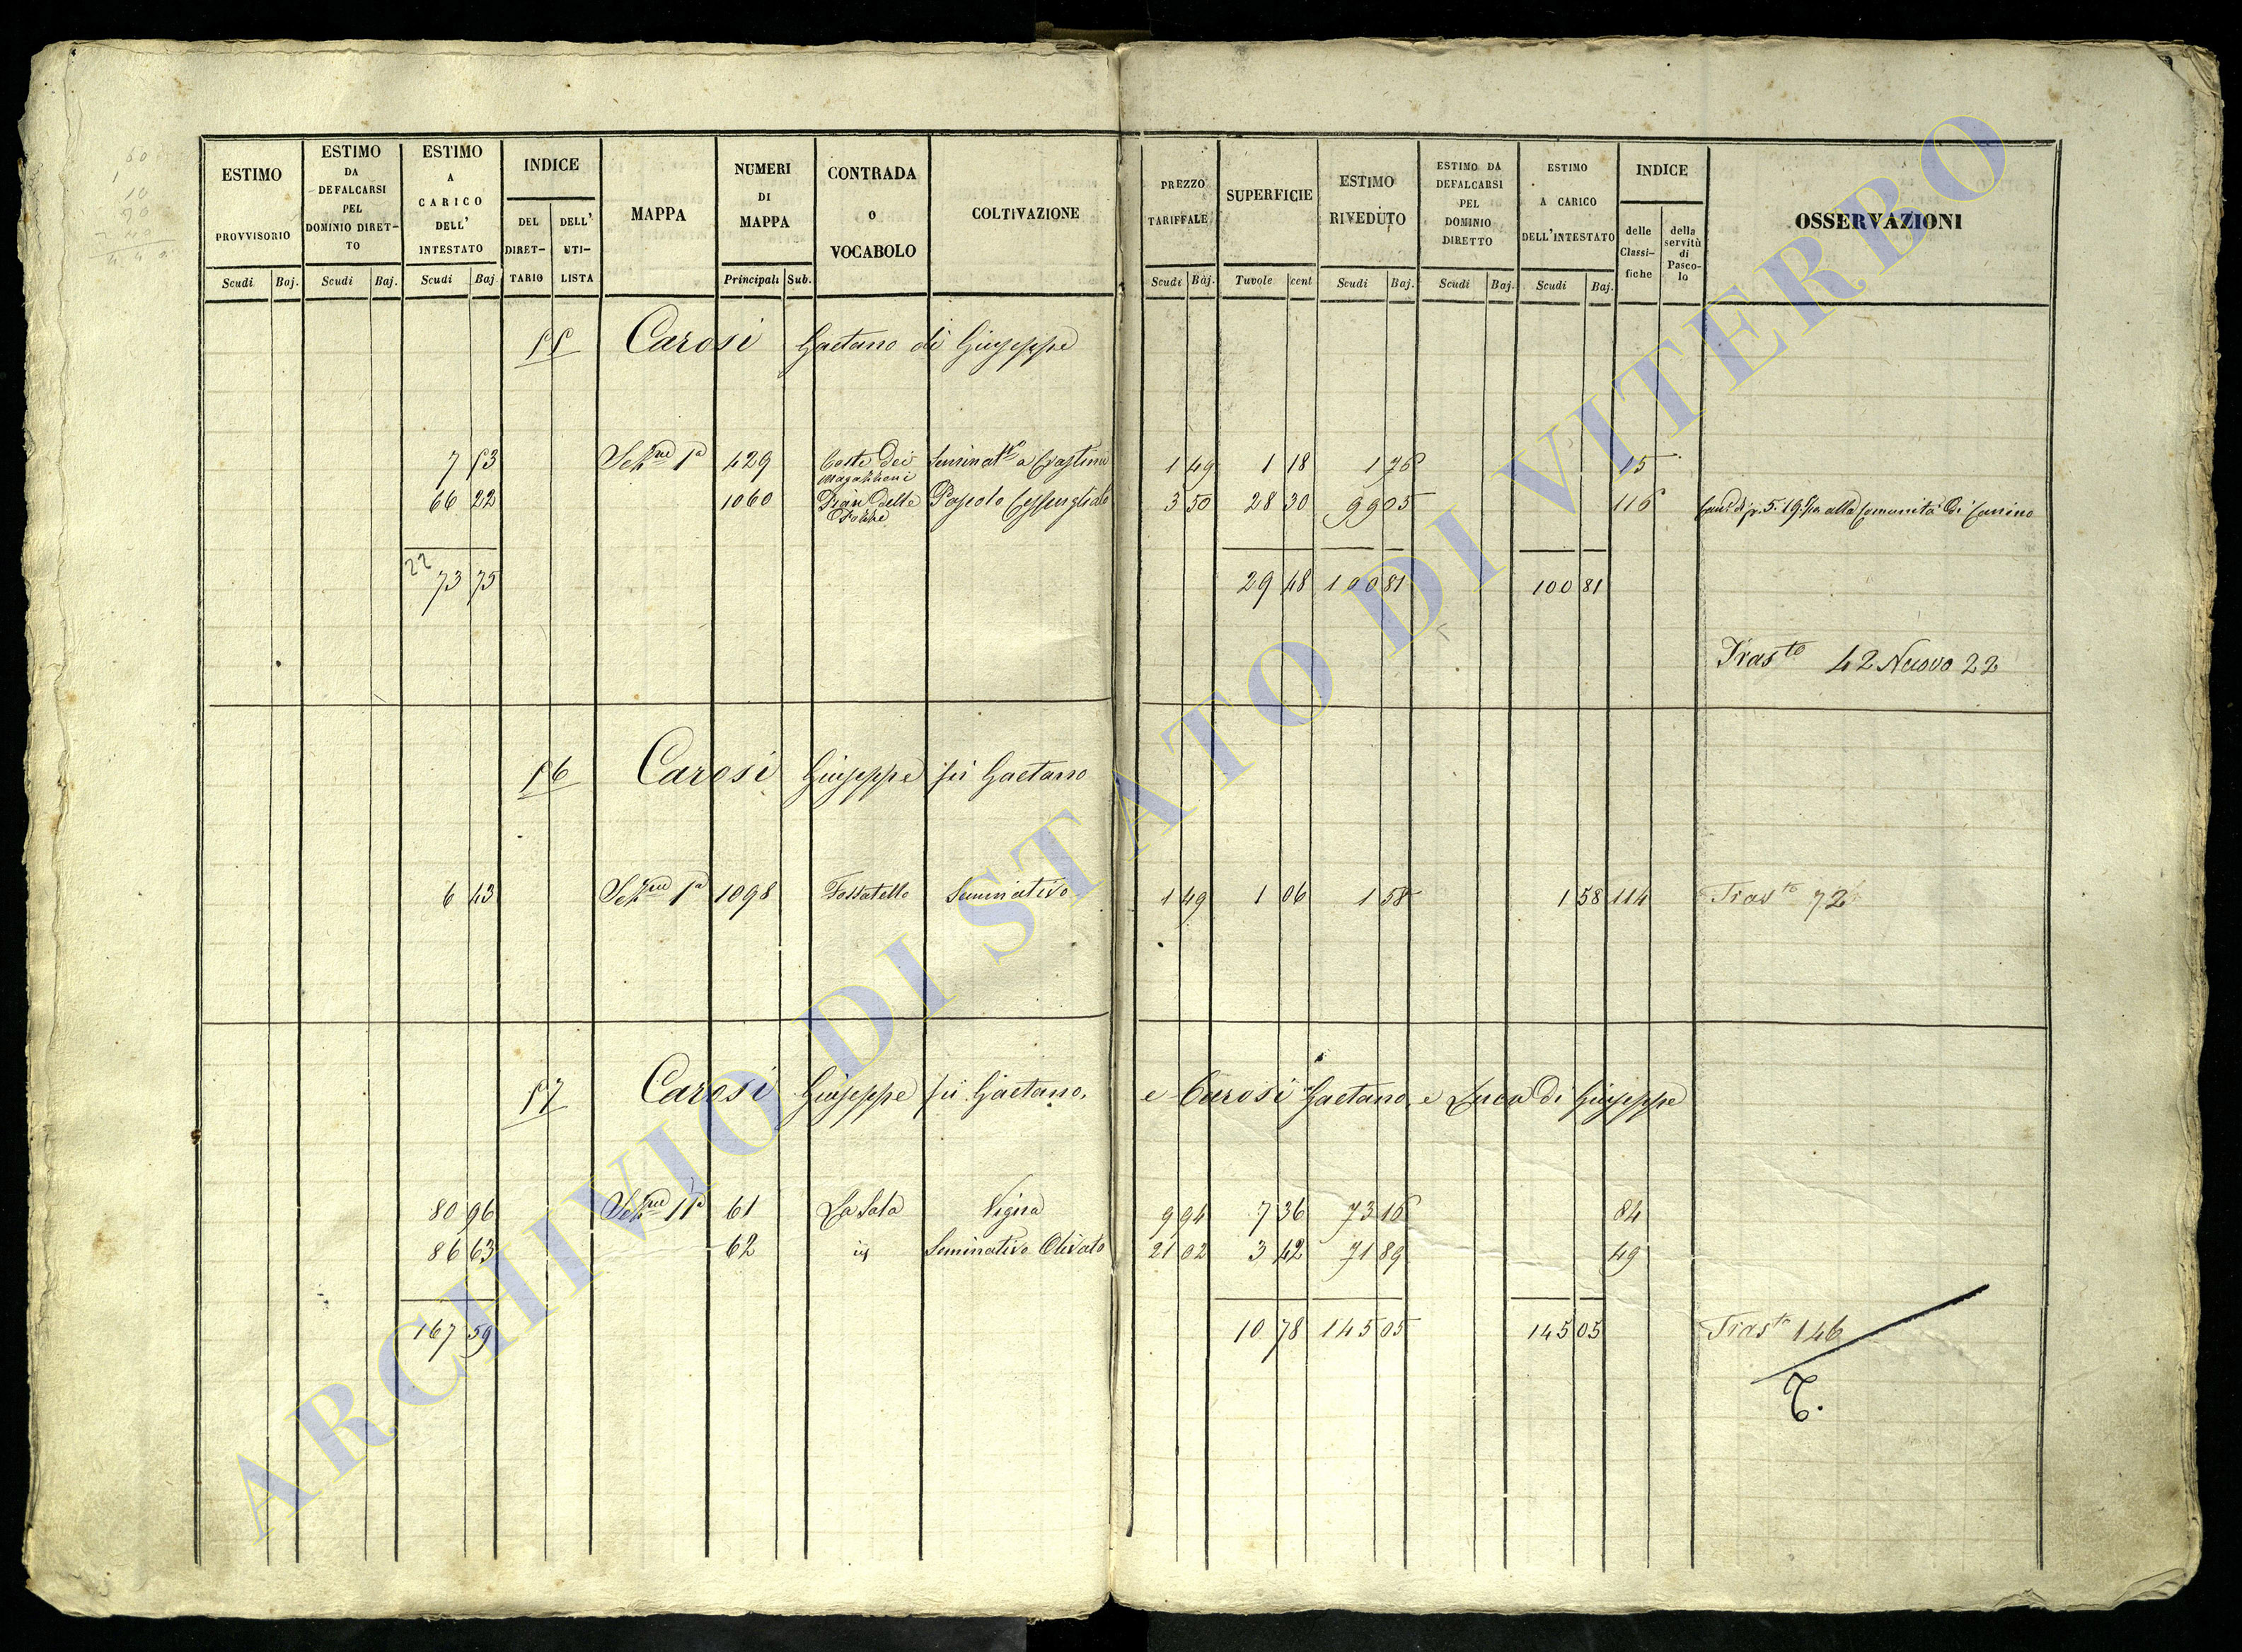 ESTIMO PROVVISORIO Scudi Baj.
ESTIMO DA DEFALCARSI PEL DOMINIO DIRET-TO Scudi Baj.
ESTIMO A CARICO DELL' INTESTATO Scudi Baj.
INDICE DEL DIRET-TARIO DELL' UTI-LISTA
MAPPA
NUMERI DI MAPPA Principali Sub.
CONTRADA O VOCABOLO
COLTIVAZIONE
PREZZO TARIFFALE Scudi Baj.
SUPERFICIE Tavole cent
ESTIMO RIVEDUTO Scudi Baj.
ESTIMO DA DEFALCARSI PEL DOMINIO DIRETTO Scudi Baj.
ESTIMO A CARICO DELL'INTESTATO Scudi Baj.
INDICE delle Classi-fiche della servitù di Pasco-lo
OSSERVAZIONI
55 Carosi Gaetano di Giuseppe
7 53 Sezne 1a 429 Coste dei 1 49 1 18 1 76 15
66 22 1060 Pian delle Pascolo Cespugliato 3 50 28 30 99 05 116 alla Comunità di
22
73 75 29 48 100 81 100 81
Trasto 42 Nuovo 22
56 Carosi Giuseppe fù Gaetano
6 43 Sezne 1a 1098 Fossatello Seminativo 1 49 1 06 1 58 1 58 114 Trasto 72
57 Carosi Giuseppe fù Gaetano, e Carosi Gaetano, e Luca di Giuseppe
80 96 Sezne 11a 61 La Sala Vigna 9 94 7 36 73 16 84
86 63 62 is Seminativo Olivato 21 02 3 42 71 89 49
167 59 10 78 145 05 145 05 Trasto 146
T.
ARCHIVIO DI STATO DI VITERBO